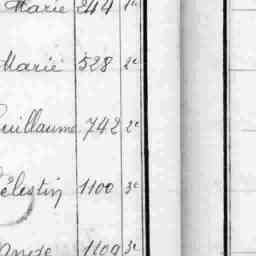 Marie 244 1e
Marie 528 2e
Guillaume 742 2e
Célestin 1100 3e
1109 3e